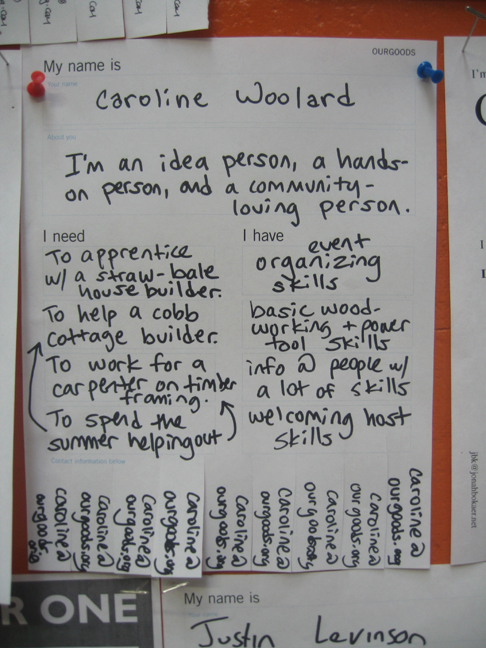 OURGOODS
My name is
Your name
Caroline Woolard
About you
I'm an idea person, a hands-
on person, and a community-
loving person.
I need
To apprentice
w/ a straw-bale
house builder.
To help a cobb
cottage builder.
To work for a
carpenter on timber
framing.
To spend the
summer helping out
I have
event
organizing
skills
basic wood-
working + power
tool skills
info @ people w/
a lot of skills
welcoming host
skills
Contact information below
caroline@
ourgoods.org
caroline@
ourgoods.org
caroline@
ourgoods.org
caroline@
ourgoods.org
caroline@
ourgoods.org
caroline@
ourgoods.org
caroline@
ourgoods.org
caroline@
ourgoods.org
caroline@
ourgoods.org
I'm
jbk@jonahbokaer.net
R ONE
My name is
Your name
Justin Levinson